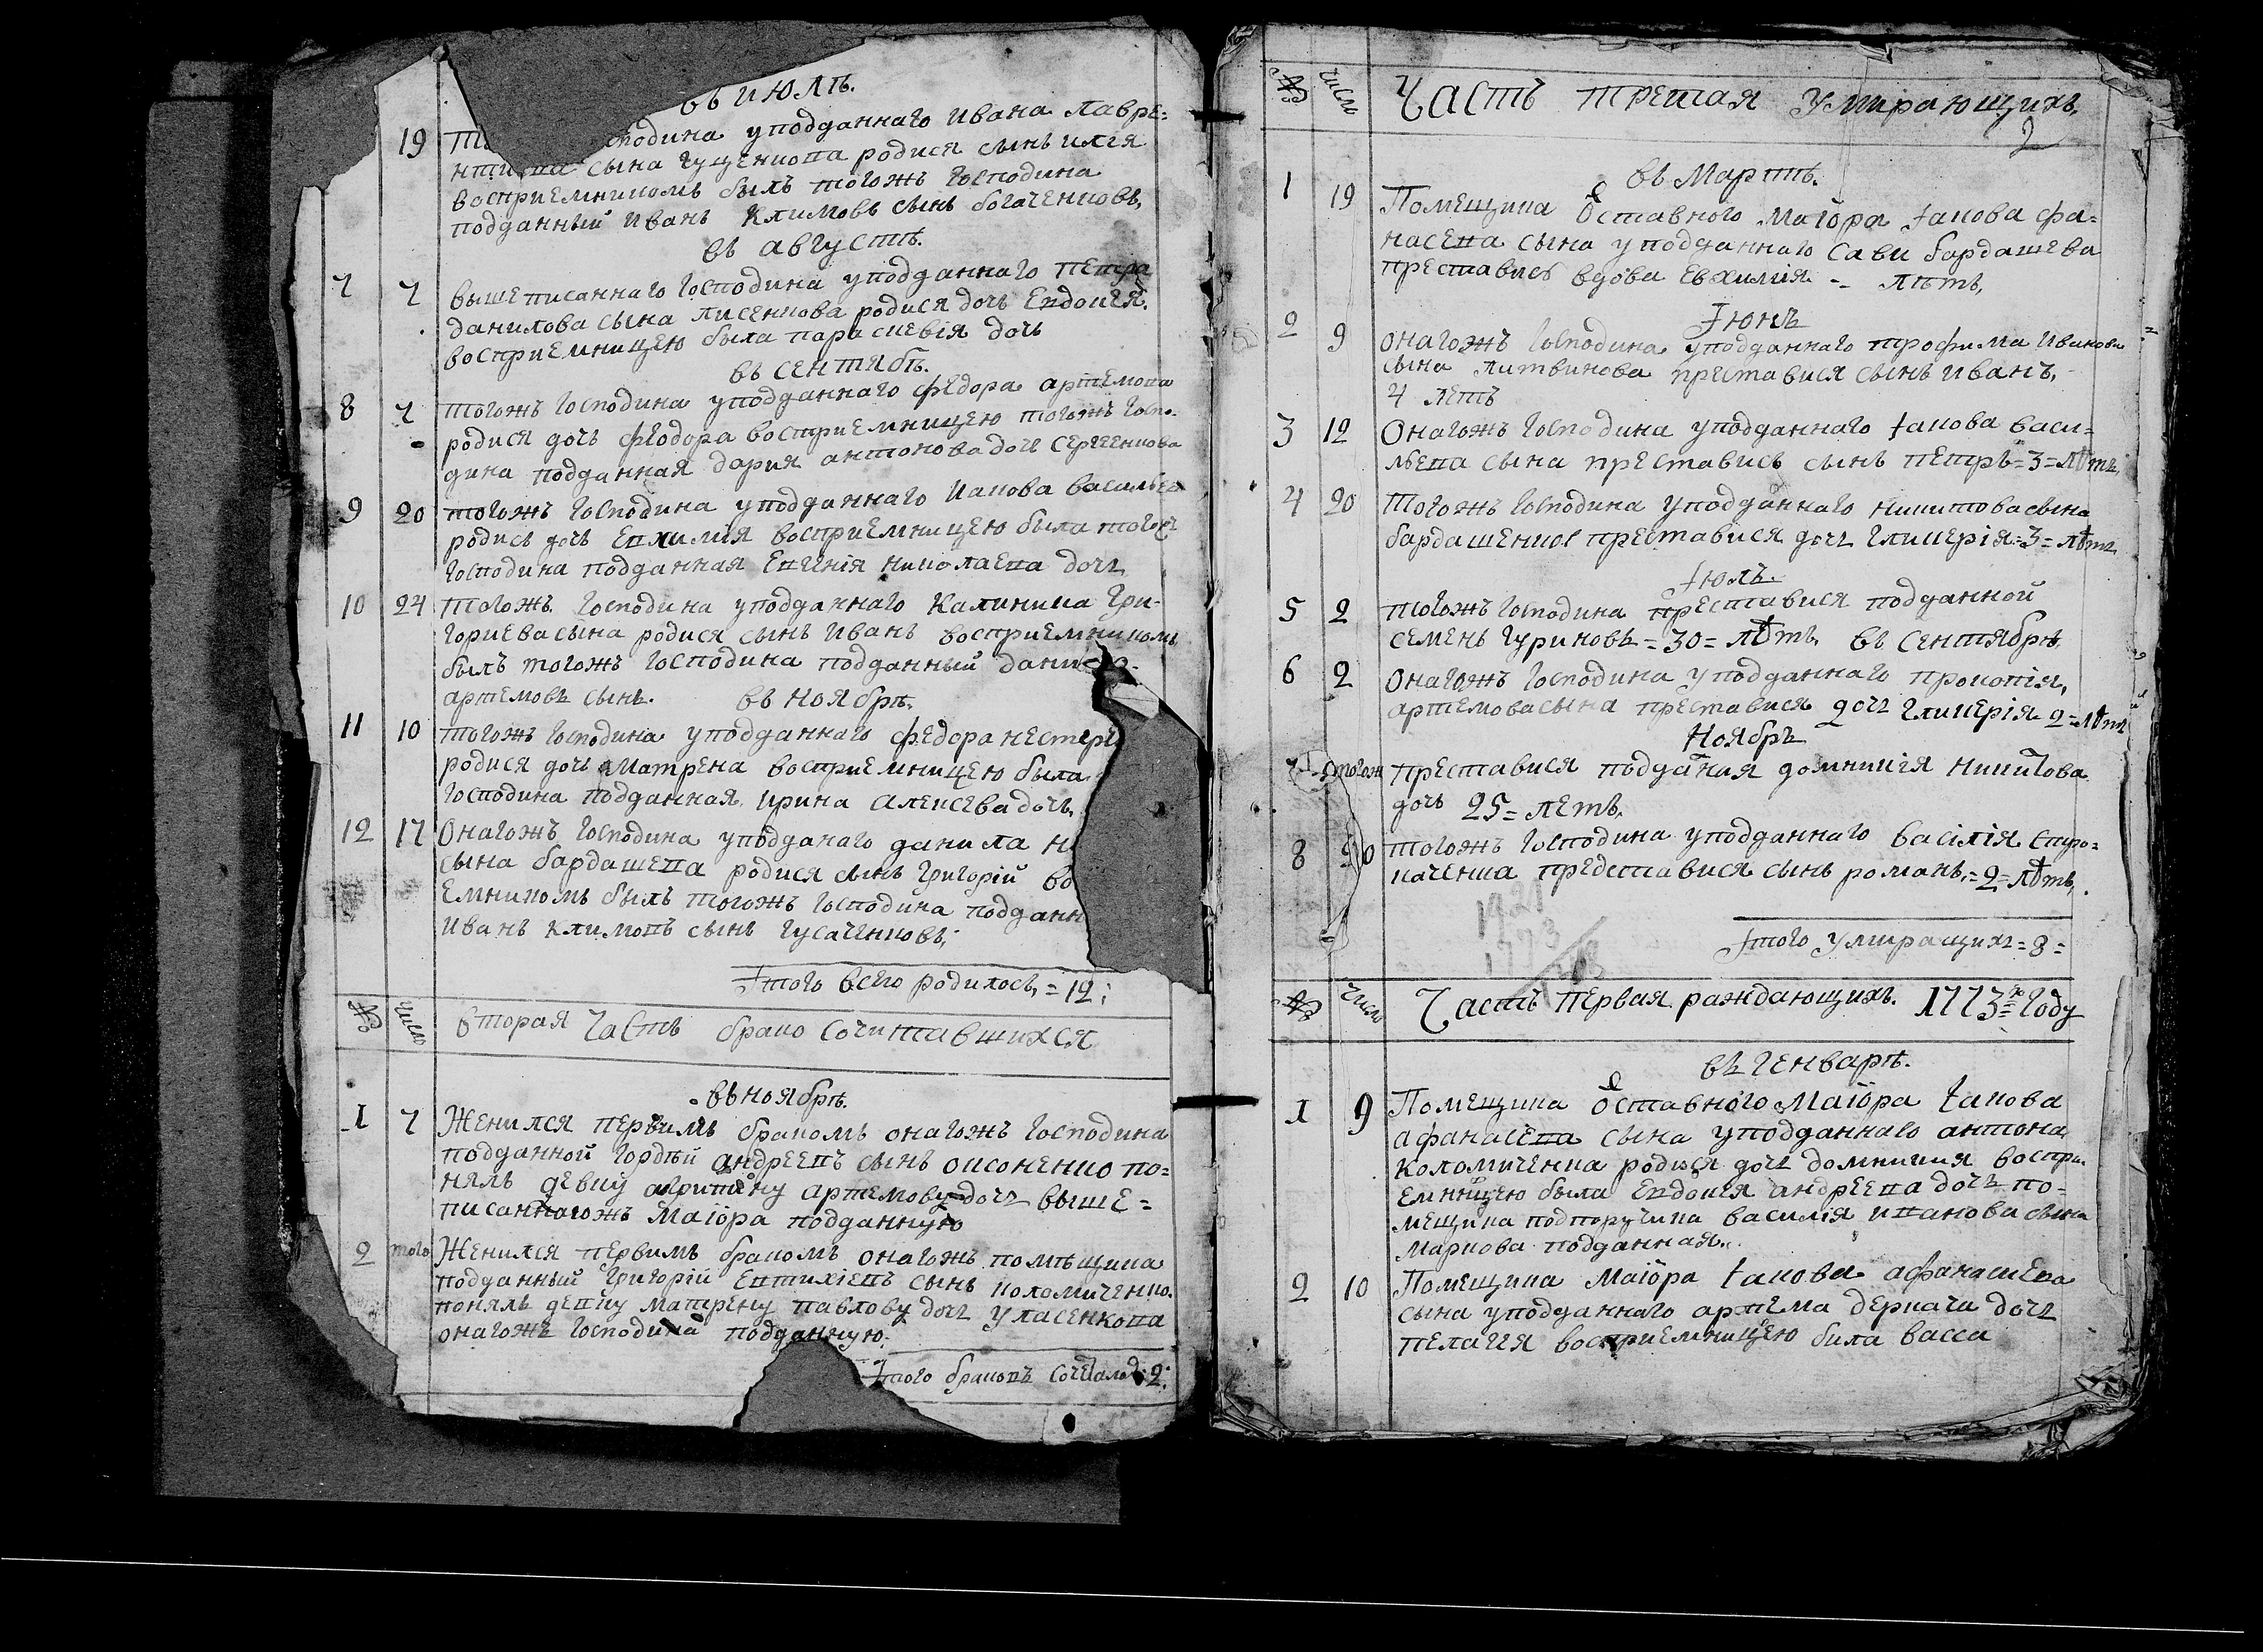 въ июлѣ.
19 сподина уподданнаго ивана лавре=
сына гущенкова родися сынъ илія
восприемникомъ былъ тогожъ господина
подданный иванъ климовъ сынъ богаченковъ,
въ августѣ.
7 7 вышеписаннаго господина уподданнаго петра
данилова сына лисенкова родися дочь Евдокия.
восприемницею была параскевія дочь
въ сентябѣ.
8 7 тогожъ господина уподданнаго федора артемова
родися дочь феодора восприемницею тогожъ госпо=
дина подданная дария антонова дочь сергеенкова
9 20 тогожъ господина уподданнаго иакова василье
родись дочь Евхимія восприемницею была тогожъ
господина подданная Евгенія николаева дочь
10 24 тогожъ господина уподданнаго калиника гри=
гориева сына родися сынъ иванъ восприемникомъ
былъ тогожъ господина подданный
артемовъ сынъ. въ ноябрѣ.
11 10 тогожъ господина уподданнаго федора нестер
родися дочь матрена восприемницею была
господина подданная ирина алексева дочь.
12 17 Онагожъ господина уподданаго данила н
сына бардашева родися сынъ григорій во
емникомъ былъ тогожъ господина поддан
иванъ климовъ сынъ гусаченковъ;
Ітого всего родилось, = 12;
№ число вторая часть брако сочитавшихся
въ ноябрѣ.
1 7 Женился первимъ бракомъ онагожъ господина
подданной гордѣй андреевъ сынъ по=
нялъ девку артемову дочь выше=
писаннагожъ маіора подданную
2 того Женился первимъ бракомъ онагожъ помѣщика
подданный григорій Евтихіевъ сынъ коломиченко.
понялъ девку матрену павлову дочь уласенкова
онагожъ господина подданную;
Ітого браковъ :2:
№ число Часть третая умирающихъ,
2
въ мартѣ.
1 19 Помещика оставного маіора Іакова афа=
насева сына уподданнаго сави бардашева
преставись вдова Евхимія -- лѣтъ,
Іюнь
2 9 онагожъ господина уподданнаго трофима иванова
сына литвинова преставися сынъ иванъ,
4 летъ
3 12 Онагожъ господина уподданнаго Іакова васи=
льева сына преставись сынъ петръ = 3 = лѣтъ,
4 20 тогожъ господина уподданнаго никитова сына
бардашенко преставися дочь гликерія = 3 = лѣтъ
Іюль.
5 2 тогожъ господина преставися подданной
семенъ гуриновъ = 30 = лѣтъ, въ сентябрѣ,
6 2 онагожъ господина уподданнаго прокопія,
артемова сына преставися дочь гликерія 2 = лѣтъ
Ноябръ
7 тогож преставися подданая домникія никитова
дочь 25 = летъ,
8 тогожъ господина уподданнаго василія
представися сынъ романъ, = 2 = лѣтъ,
1921
1773
148
Ітого умиращихъ = 8 =
№ число Часть первая раждающихъ. 1773го году
въ генварѣ.
1 9 Помещика оставного маіора Іакова
афанасева сына уподданнаго антона
коломиченка родися дочь домникия воспри
емницею была Евдокия андреева дочь по=
мещика подпоручика василія иванова сына
маркова подданная.
2 10 Помещика маіора Іакова афанасиева
сына уподданнаго артема дерkача дочь
пелагея восприемницею била васса